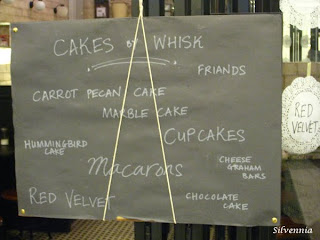 CAKES BY WHISK
FRIANDS
CARROT PECAN CAKE
MARBLE CAKE
CUPCAKES
HUMMINGBIRD
CAKE
Macarons
CHEESE
GRAHAM
BARS
RED VELVET
CHOCOLATE
CAKE
RED
VELVET
Silvennia